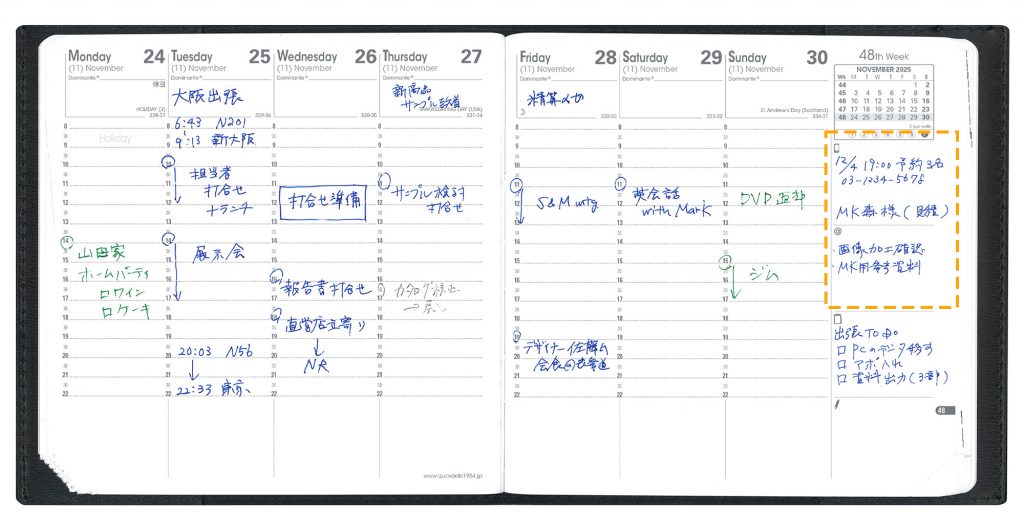 Monday 24
(11) November
Dominante®
休日
HOLIDAY (J)
328-37
Holiday
山田家
ホームパーティ
ロワイン
ロケーキ
Tuesday 25
(11) November
Dominante®
大阪出張
329-36
6:43 N201
9:13 新大阪
担当者
打合せ
+ランチ
展示会
20:03 N56
22:33 東京
Wednesday 26
(11) November
Dominante®
330-35
打合せ準備
報告書打合せ
直営店立寄り
NR
Thursday 27
(11) November
Dominante®
新商品
サンプル到着
THANKSGIVING DAY (USA)
331-34
サンプル検討
打合せ
カタログ修正
www.quovadis1954.jp
Friday 28
(11) November
Dominante®
精算〆切
332-33
S&M mtg
デザイナー佐藤さん
会食@表参道
Saturday 29
(11) November
Dominante®
333-32
英会話
with Mark
Sunday 30
(11) November
Dominante®
St. Andrew's Day (Scotland)
334-31
DVD返却
ジム
48th Week
NOVEMBER 2025
Wk M T W T F S S
44 1 2
45 3 4 5 6 7 8 9
46 10 11 12 13 14 15 16
47 17 18 19 20 21 22 23
48 24 25 26 27 28 29 30
12/4 19:00 予約3名
03-1234-5678
MK森様(日経)
@
・画像加工確認
・MK用参考資料
出張TO DO
□ PCのデータ移す
□ アポ入れ
□ 資料出力(3部)
48